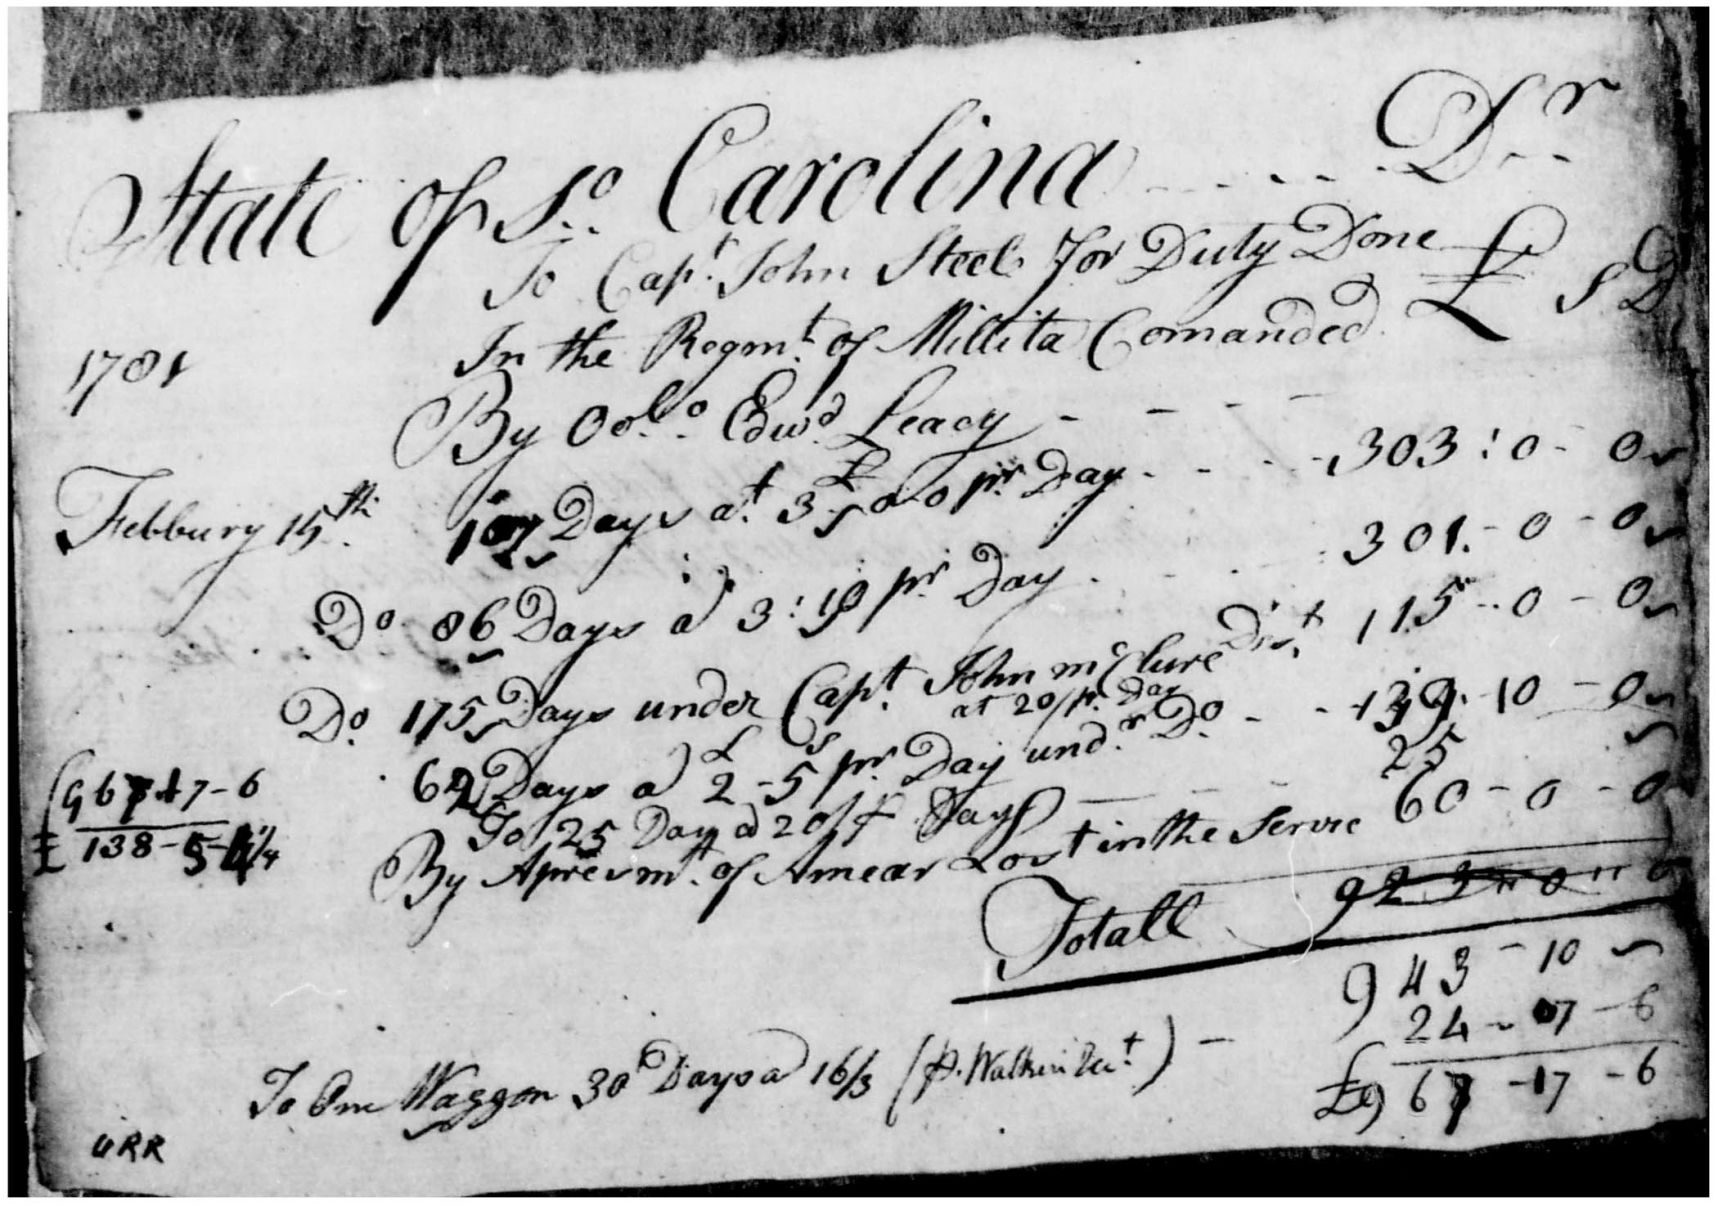 State of So. Carolina ..... Dr
To Capt. John Steel For Duty Done £ S D
1781 In the Regmt. of Millita Comanded
By Colo. Edwd. Leacy - - - -
Febbury 15th. Days at 3 £ 0-0 pr. Day - - - 303:0-0
Do 86 Days a 3:10 pr Day - - 301-0-0
Do. 175 Days under Capt. John McClure Dist. 115-0-0
at 20/pr. Day
Days a £2-5s pr. Day undr. Do. - - 139-10-0
To 25 Day a 20/ Day 25
By Apresmt. of Amear Lost in the Servic 60-0-0
£967-17-6
£138-5-
Totall
943-10
24-17-6
To One Waggon 30 Days a 16/3 (p. Walker ) -
£967-17-6
URR